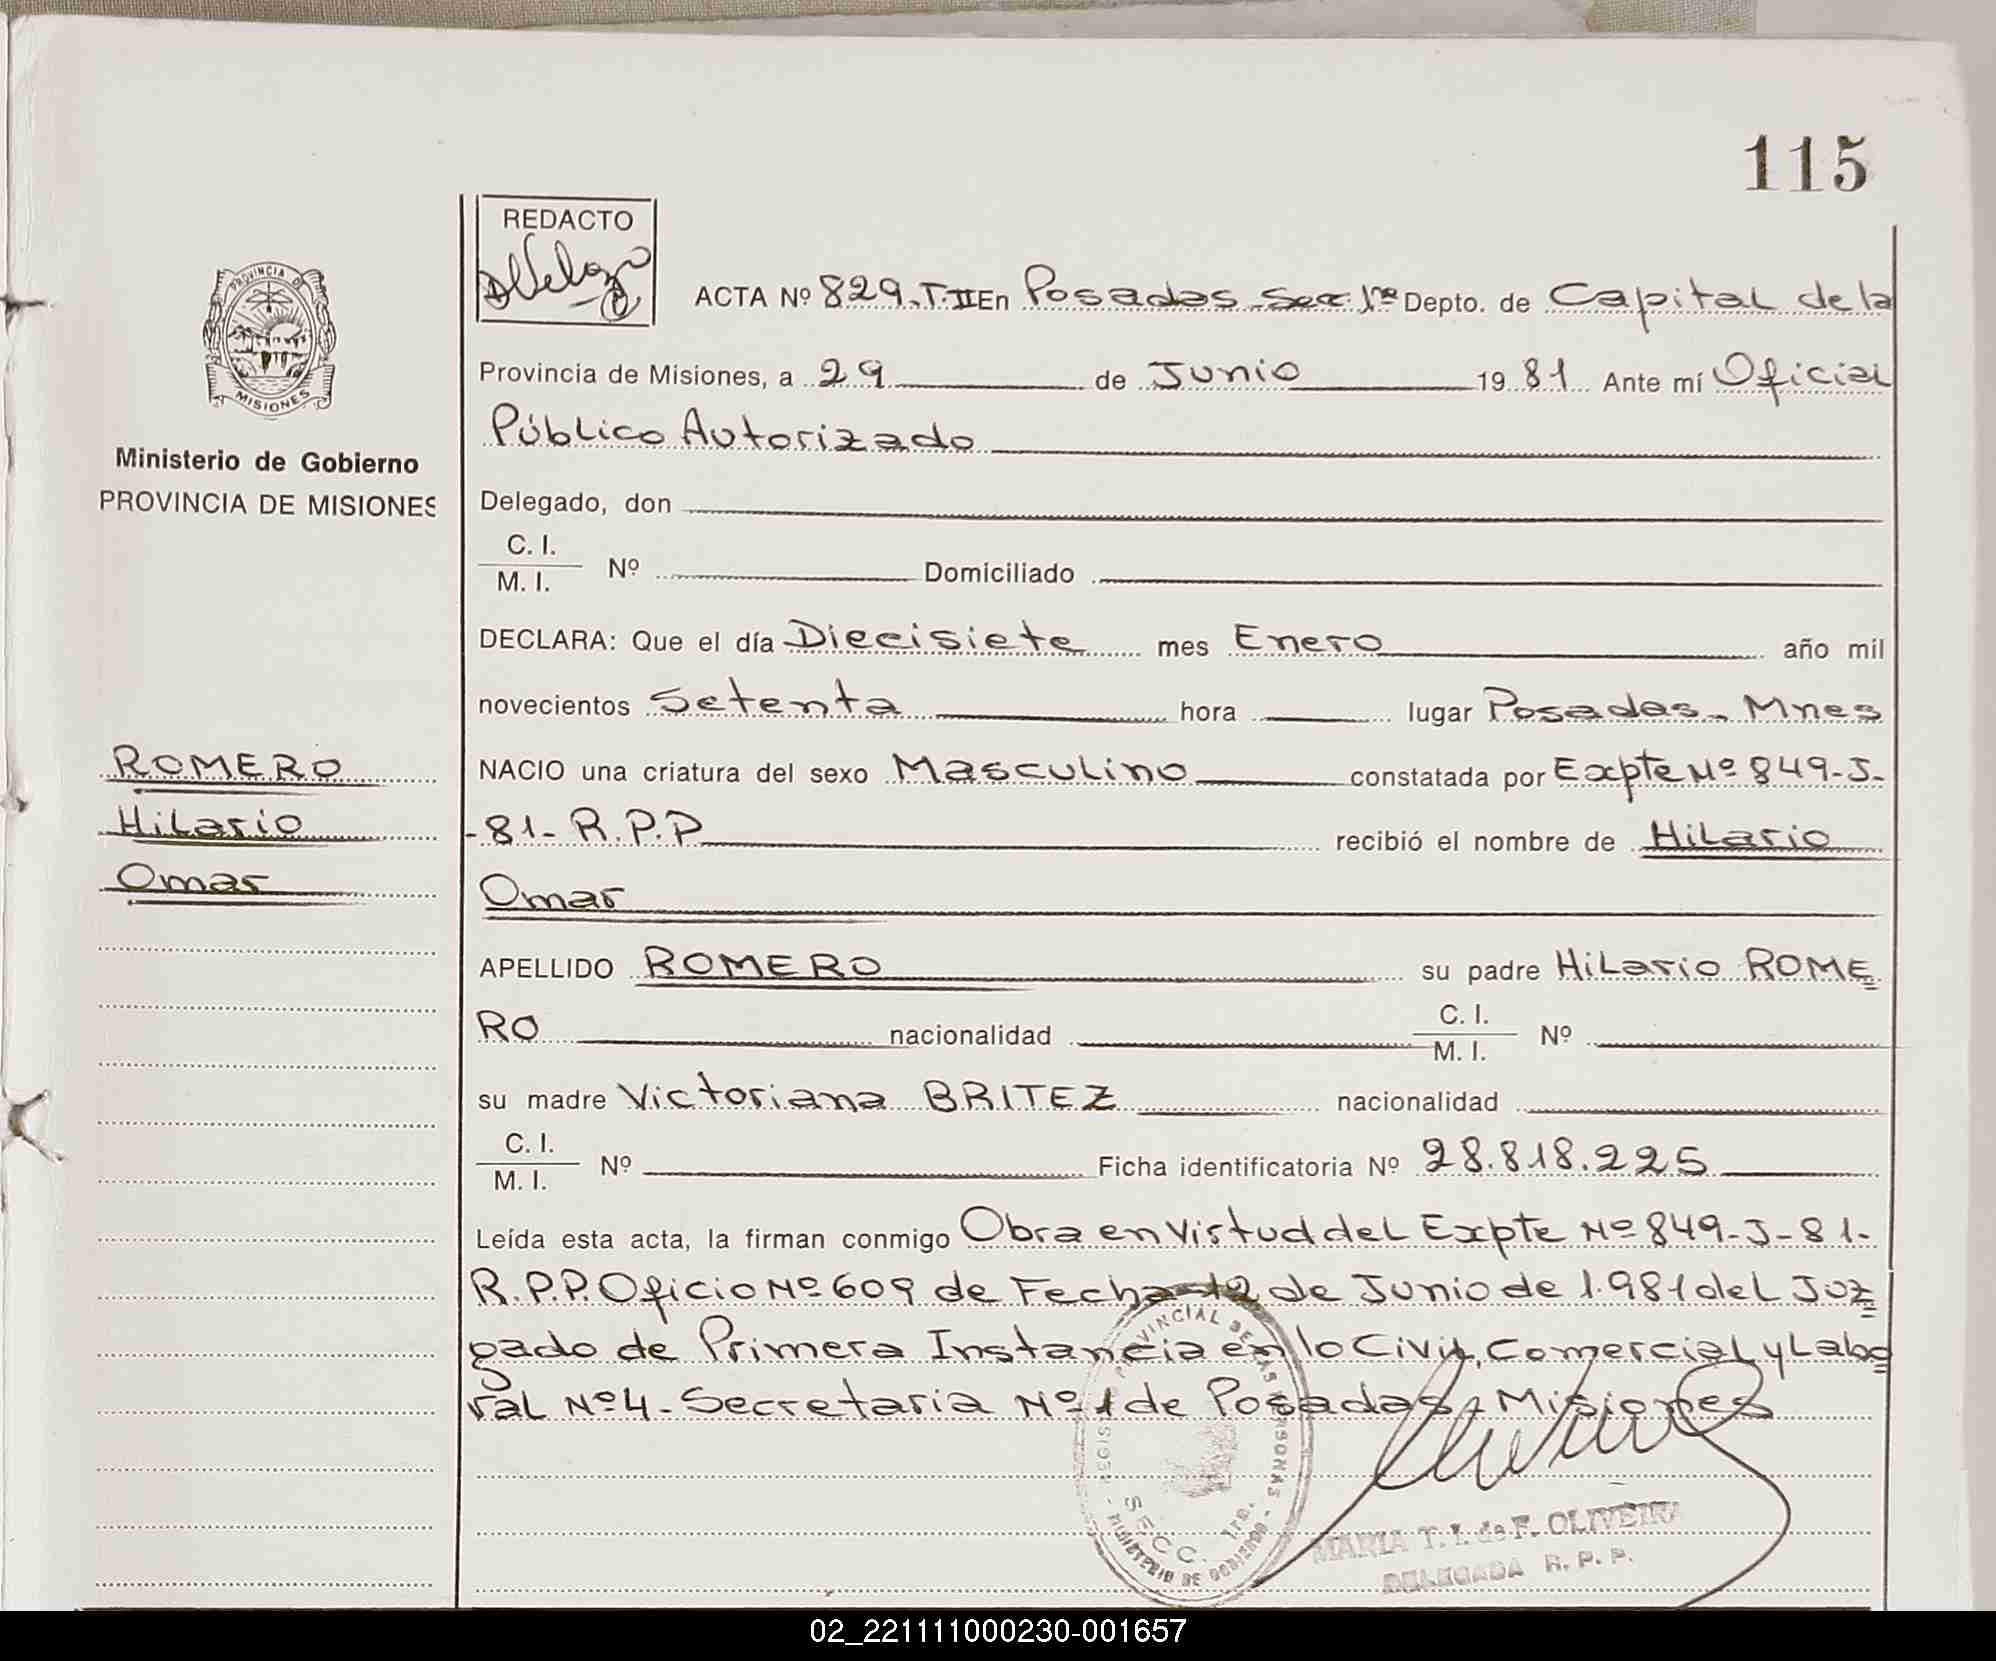 115
REDACTO
PROVINCIA DE
MISIONES
Ministerio de Gobierno
PROVINCIA DE MISIONES
ROMERO
Hilario
Omar
ACTA Nº 829.T.II En Posadas Sec. 1ra Depto. de Capital de la
Provincia de Misiones, a 29 de Junio 1981 Ante mí Oficial
Público Autorizado
Delegado, don
C. I.
M. I. Nº Domiciliado
DECLARA: Que el día Diecisiete mes Enero año mil
novecientos Setenta hora lugar Posadas, Mnes
NACIO una criatura del sexo Masculino constatada por Expte Nº 849-J-
-81- R.P.P recibió el nombre de Hilario
Omar
APELLIDO ROMERO su padre Hilario ROME
RO nacionalidad C. I. M. I. Nº
su madre Victoriana BRITEZ nacionalidad
C. I.
M. I. Nº Ficha identificatoria Nº 28.818.225
Leída esta acta, la firman conmigo Obra en Virtud del Expte Nº 849-J-81-
R.P.P. Oficio Nº 609 de Fecha 12 de Junio de 1.981 del Juz
gado de Primera Instancia en lo Civil, Comercial y Labo
ral Nº 4 - Secretaria Nº 1 de Posadas - Misiones
REGISTRO PROVINCIAL DE LAS PERSONAS
SECC. 1ra.
MINISTERIO DE GOBIERNO
MARIA T. I. de F. OLIVEIRA
DELEGADA R. P. P.
02_221111000230-001657